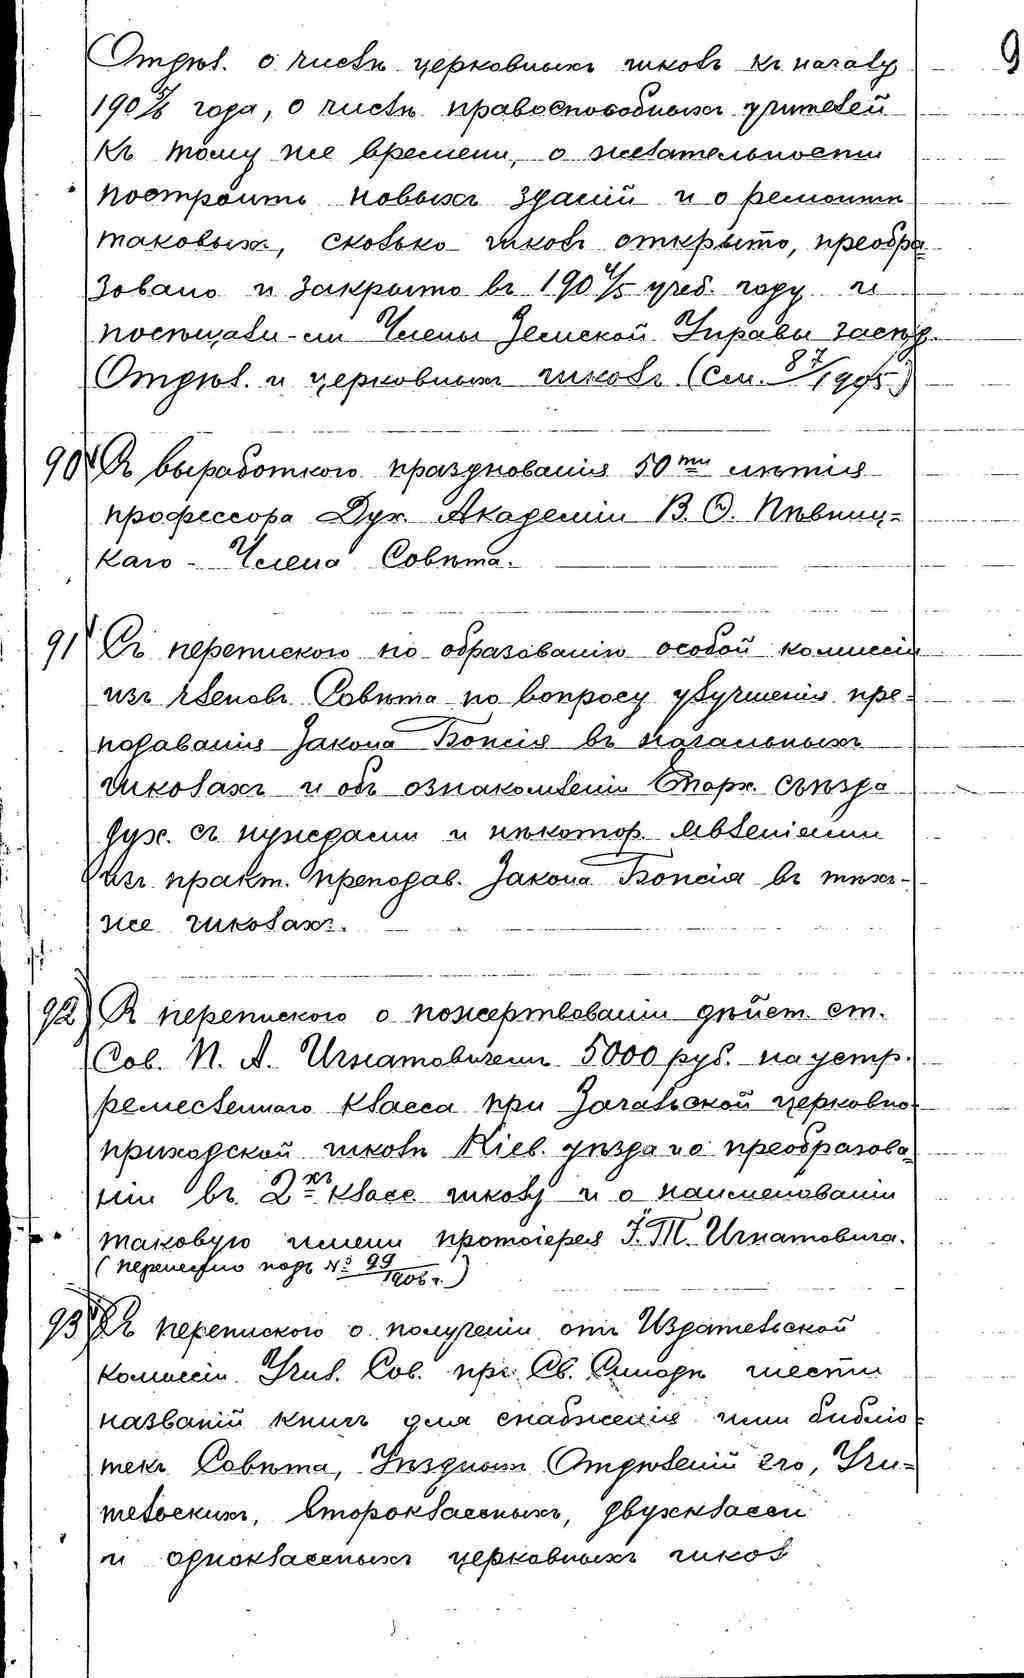 9
Отдѣл. о числѣ церковныхъ школъ къ началу
1905/6 года, о числѣ правоспособныхъ учителей
къ тому же времени, о желательности
построить новыхъ зданій и о ремонтѣ
таковыхъ, сколько школъ открыто, преобра-
зовано и закрыто въ 1904/5 учеб. году и
посѣщали-ли Члены Земской Управы засѣд.
Отдѣл. и церковныхъ школъ (См. 87/1905)
90) Съ выработкою празднованія 50ти лѣтія
профессора Дух. Академіи В. Ѳ. Пѣвниц=
каго - Члена Совѣта.
91) Съ перепискою по образованію особой комиссіи
изъ членовъ Совѣта по вопросу улучшенія пре=
подаванія Закона Божія въ начальныхъ
школахъ и объ ознакомленіи Епарх. съѣзда
дух. съ нуждами и нѣкотор. явленіями
изъ практ. преподав. Закона Божія въ тѣхъ-
же школахъ.
92) Съ перепискою о пожертвованіи дѣйст. ст.
Сов. П. А. Игнатовичемъ 5000 руб. на устр.
ремесленнаго класса при Зачатьской церковно-
приходской школѣ Кіев. уѣзда и о преобразова-
ніи въ 2хъ класс. школу и о наименованіи
таковую имени протоіерея І. Т. Игнатовича.
(перенесено подъ № 99/1906 г.)
93) Съ перепискою о полученіи отъ Издательской
комиссіи Учил. Сов. при Св. Синодѣ шести
названій книгъ для снабженія ими библіо=
текъ Совѣта, Уѣздныхъ Отдѣленій его, Учи=
тельскихъ, второклассныхъ, двухклассн
и одноклассныхъ церковныхъ школ